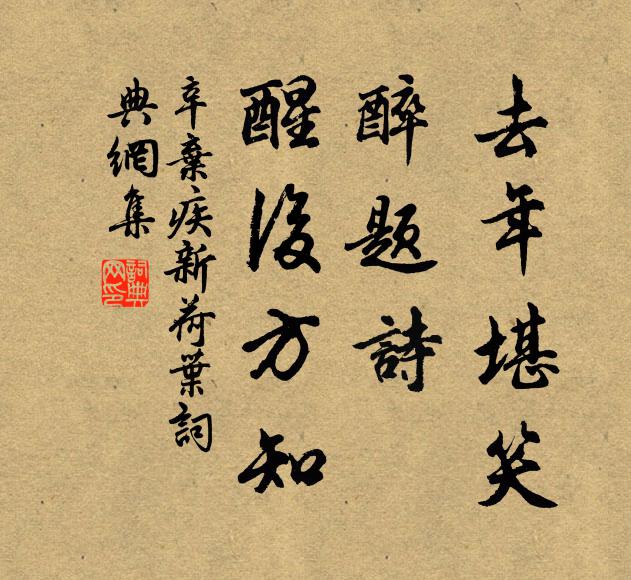 去年堪笑
醉题詩
醒後方知
辛棄疾新荷葉詞
典網集
詞典
网印